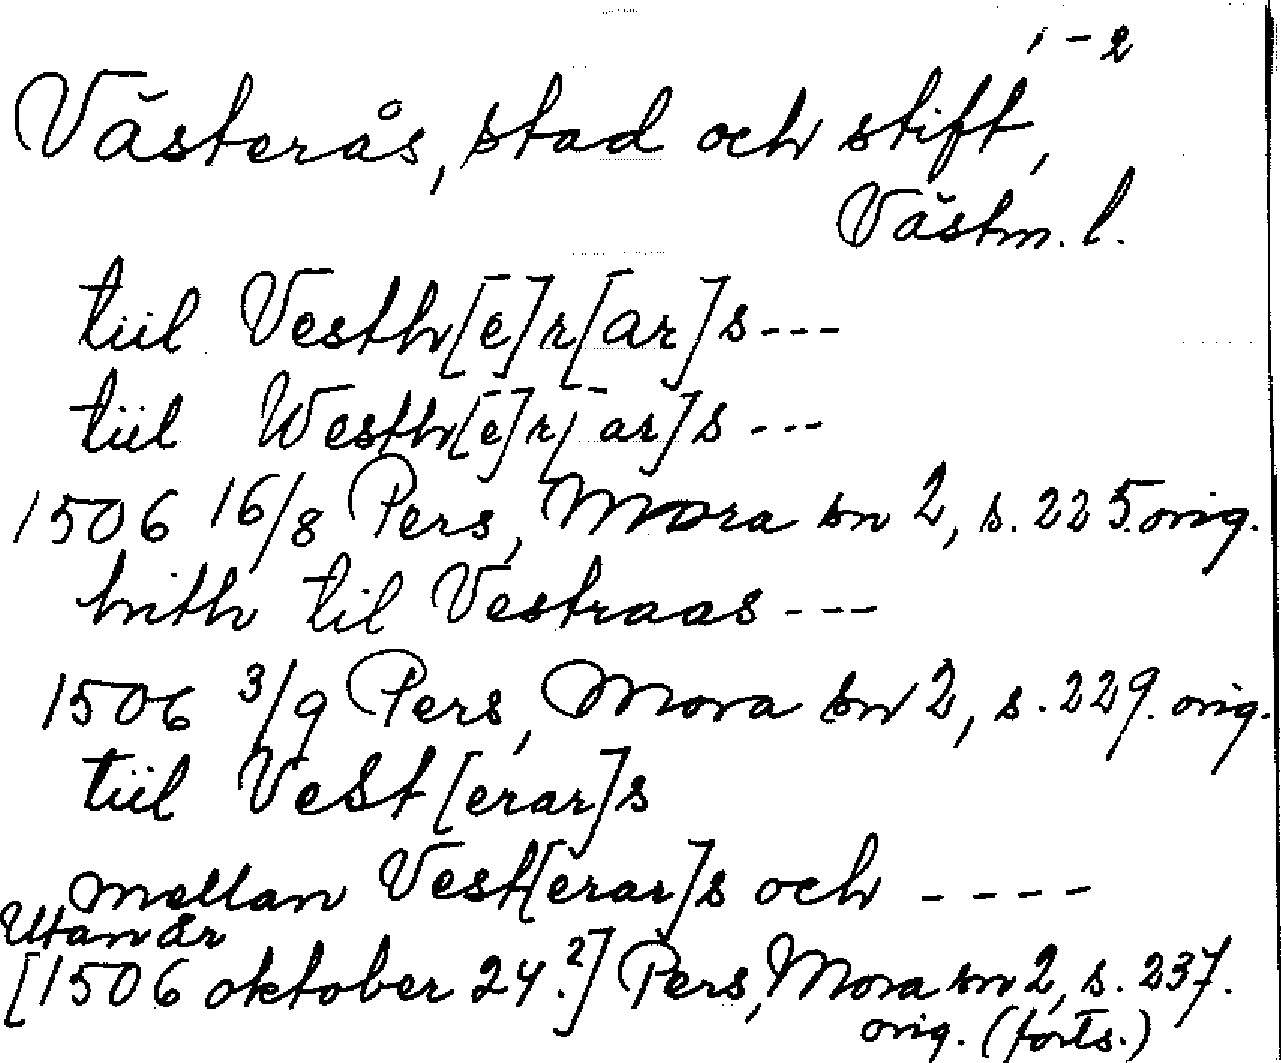 1-2
Västerås, stad och stift,
Västm. l.
tiil Vesth[e]r[ar]s ---
tiil Westh[e]r[ar]s ---
1506 16/8 Pers, Mora sn 2, s. 225. orig.
hith til Vestraas ---
1506 3/9 Pers, Mora sn 2, s. 229. orig.
tiil Vest[erar]s
mellan Vest[erar]s och ----
Utan år
[1506 oktober 24.?] Pers, Mora sn 2, s. 237.
orig. (forts.)